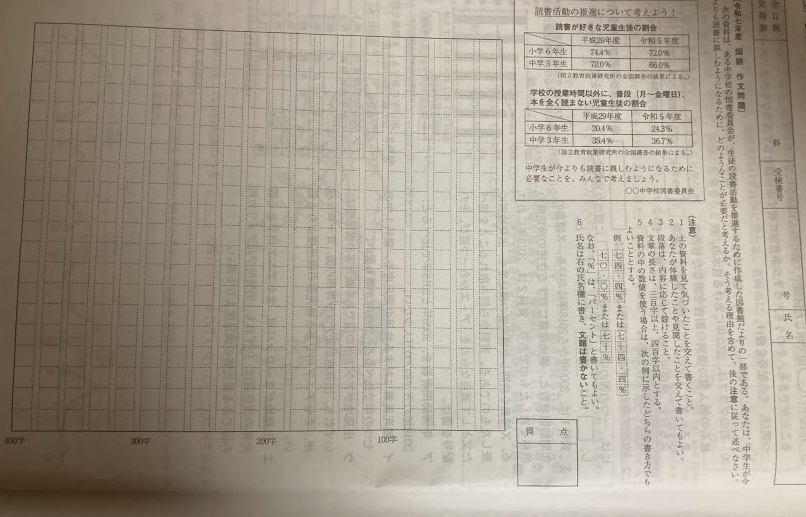 全日制
定時制
科
受検番号
号
氏名
(令和七年度 国語 作文問題)
次の資料は、ある中学校の図書委員会が、生徒の読書活動を推進するために作成した図書館だよりの一部である。あなたは、中学生が今
よりも読書に親しむようになるために、どのようなことが必要だと考えるか。そう考える理由を含めて、後の注意に従って述べなさい。
読書活動の推進について考えよう!
読書が好きな児童生徒の割合
平成29年度 令和5年度
小学6年生 74.4% 72.0%
中学3年生 70.0% 66.0%
(国立教育政策研究所の全国調査の結果による。)
学校の授業時間以外に、普段(月~金曜日)、
本を全く読まない児童生徒の割合
平成29年度 令和5年度
小学6年生 20.4% 24.3%
中学3年生 35.4% 36.7%
(国立教育政策研究所の全国調査の結果による。)
中学生が今よりも読書に親しむようになるために
必要なことを、みんなで考えましょう。
○○中学校図書委員会
(注意)
1 上の資料を見て気づいたことを交えて書くこと。
2 あなたが体験したことや見聞したことを交えて書いてもよい。
3 段落は、内容に応じて設けること。
4 文章の長さは、三百字以上、四百字以内とする。
5 資料の中の数値を使う場合は、次の例に示したどちらの書き方でも
よいこととする。
例 七四.四%または七十四.四%
七〇.〇%または七十%
なお、「%」は、「パーセント」と書いてもよい。
6 氏名は右の氏名欄に書き、文題は書かないこと。
得点
100字
200字
300字
400字